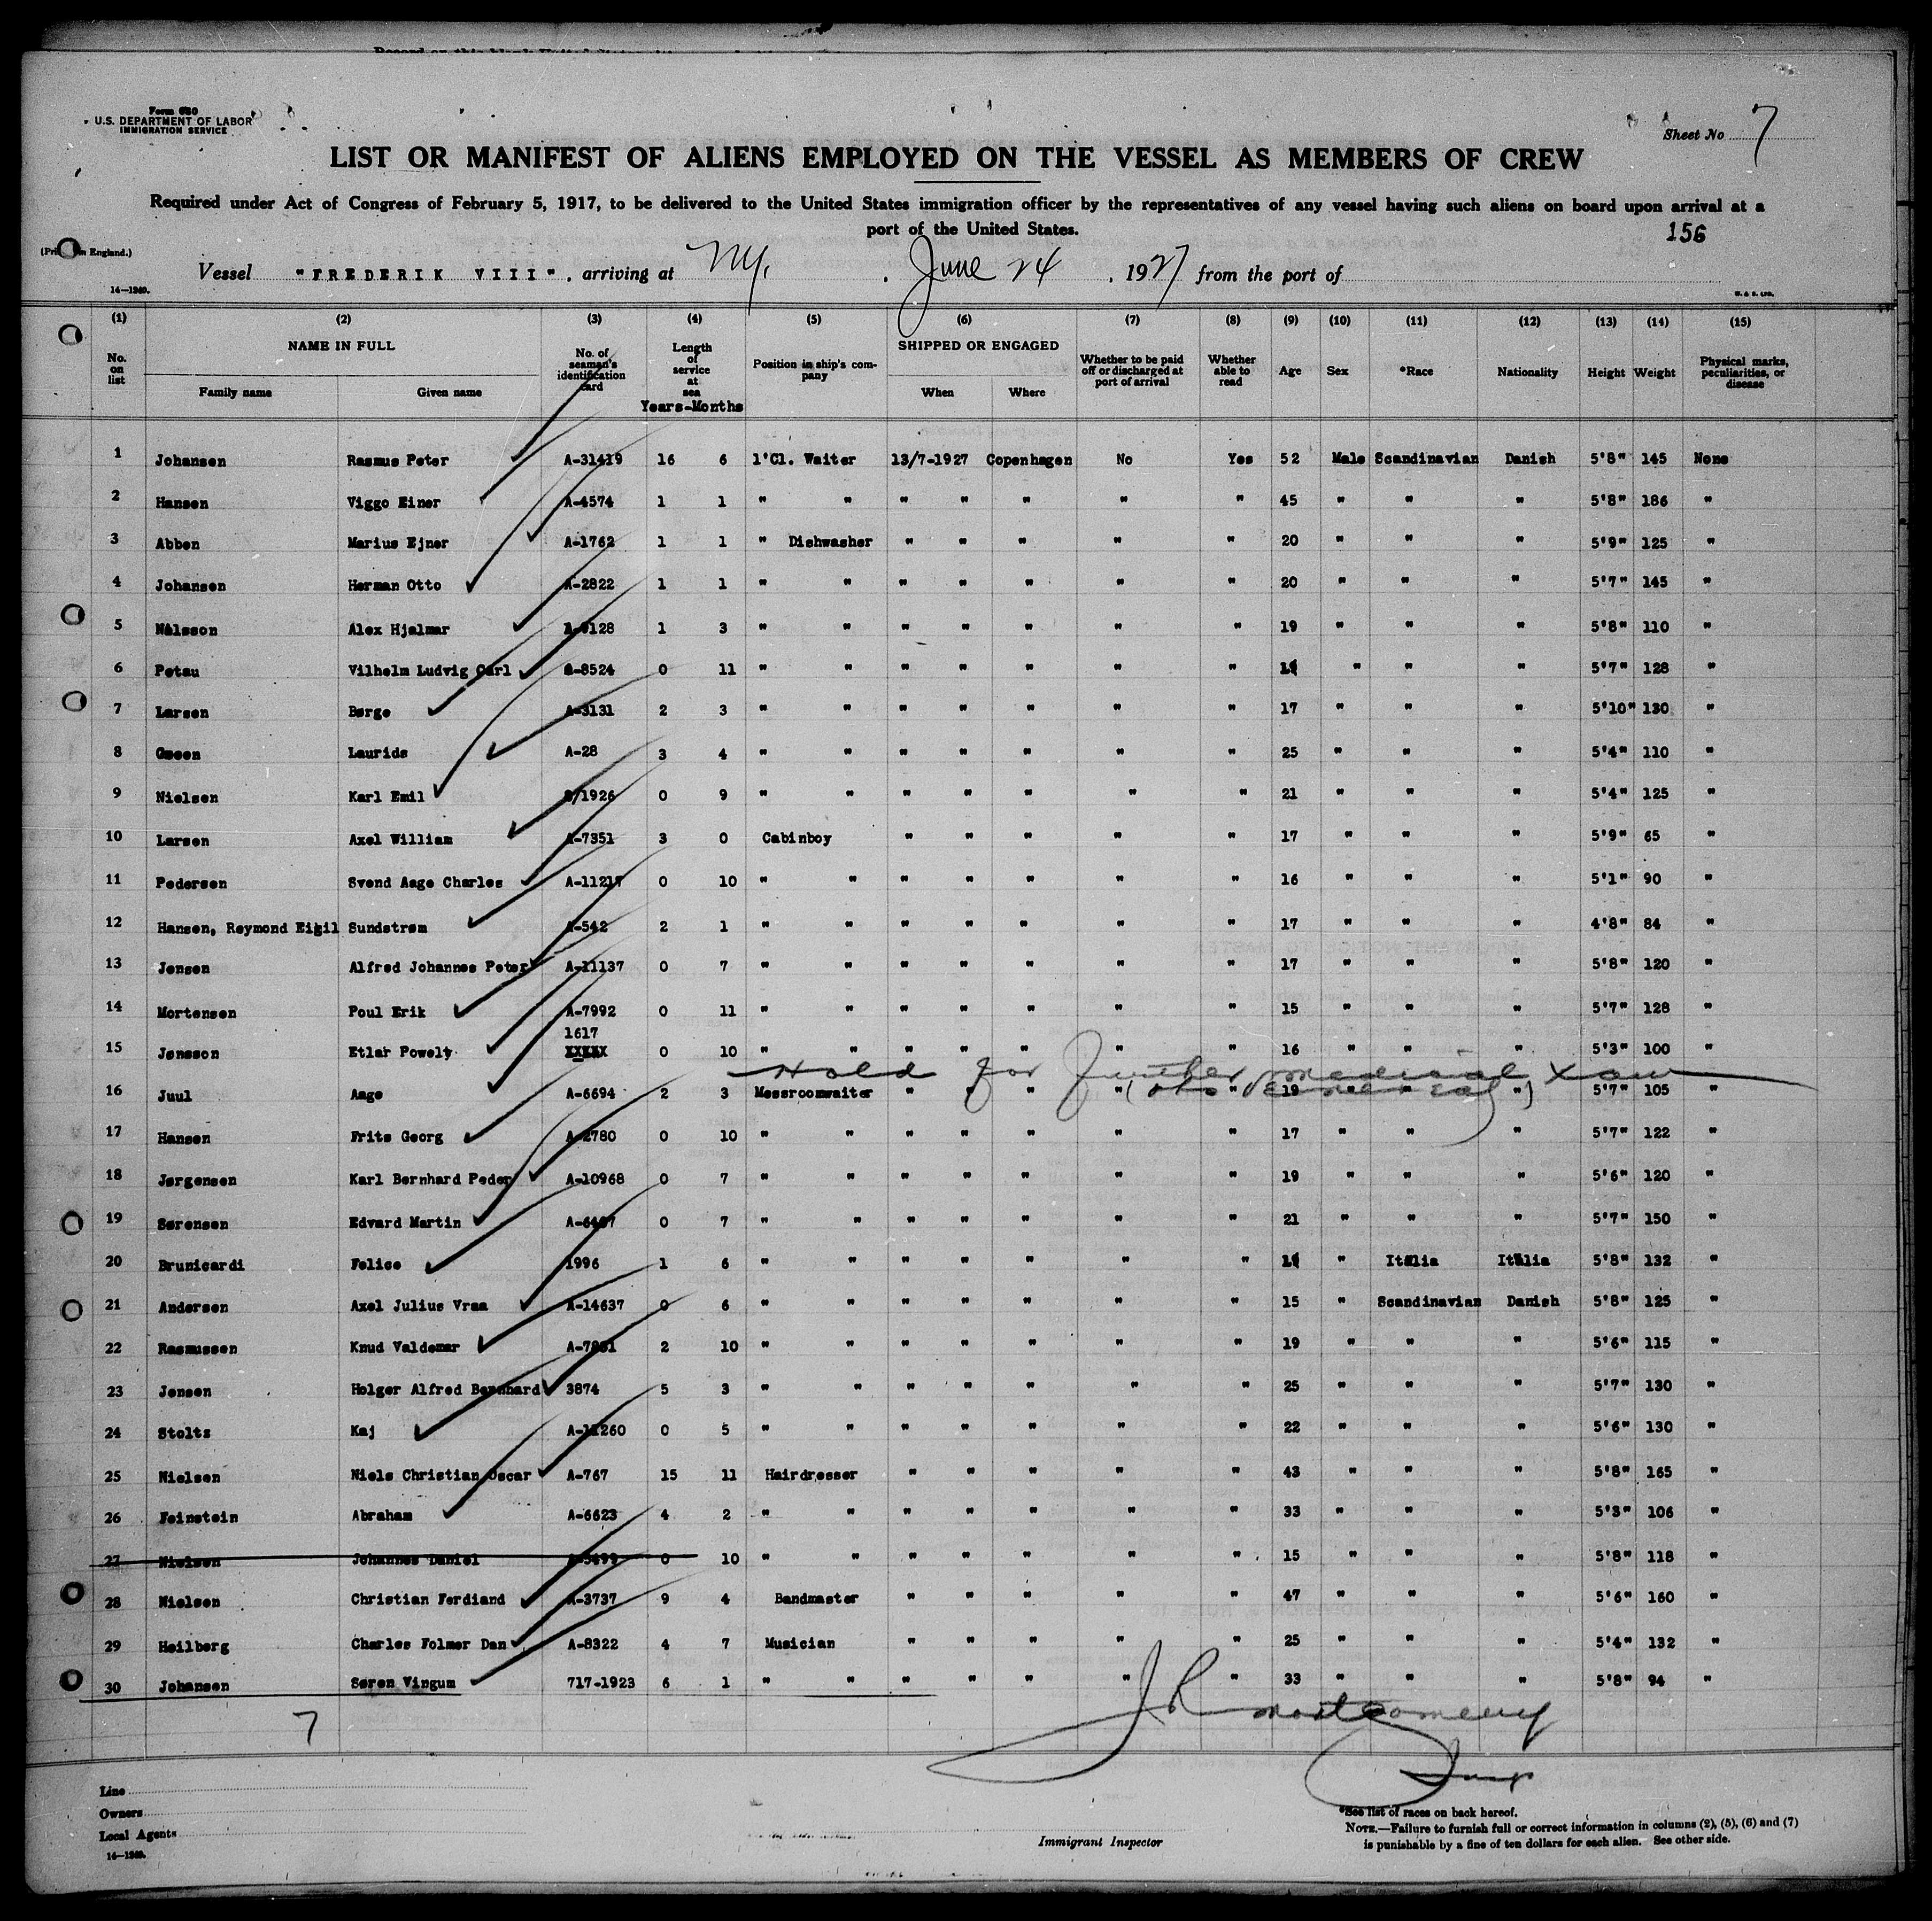 Form 680
U.S. DEPARTMENT OF LABOR
IMMIGRATION SERVICE
Sheet No 7
LIST OR MANIFEST OF ALIENS EMPLOYED ON THE VESSEL AS MEMBERS OF CREW
Required under Act of Congress of February 5, 1917, to be delivered to the United States immigration officer by the representatives of any vessel having such aliens on board upon arrival at a
port of the United States.
156
Vessel "FREDERIK VIII", arriving at NY, June 24, 1927 from the port of
14—1240.
W. & S. LTD.
(1) (2) (3) (4) (5) (6) (7) (8) (9) (10) (11) (12) (13) (14) (15)
No. on list NAME IN FULL Family name Given name No. of seaman's identification card Length of service at sea Years-Months Position in ship's company SHIPPED OR ENGAGED When Where Whether to be paid off or discharged at port of arrival Whether able to read Age Sex *Race Nationality Height Weight Physical marks, peculiarities, or disease
1 Johansen Rasmus Peter A-31419 16 6 1'Cl. Waiter 13/7-1927 Copenhagen No Yes 52 Male Scandinavian Danish 5'8" 145 None
2 Hansen Viggo Einer A-4574 1 1 " " " " " " " 45 " " " 5'8" 186 "
3 Abben Marius Ejner A-1762 1 1 " Dishwasher " " " " " 20 " " " 5'9" 125 "
4 Johansen Herman Otto A-2822 1 1 " " " " " " " 20 " " " 5'7" 145 "
5 Nilsson Alex Hjalmar 1 3 " " " " " " " 19 " " " 5'8" 110 "
6 Petau Vilhelm Ludvig Carl A-8524 0 11 " " " " " " " " " " 5'7" 128 "
7 Larsen Børge A-3131 2 3 " " " " " " " 17 " " " 5'10" 130 "
8 Laurids A-28 3 4 " " " " " " " 25 " " " 5'4" 110 "
9 Nielsen Karl Emil 0 9 " " " " " " " 21 " " " 5'4" 125 "
10 Larsen Axel William A-7351 3 0 Cabinboy " " " " " 17 " " " 5'9" 65 "
11 Pedersen Svend Aage Charles A-11217 0 10 " " " " " " " 16 " " " 5'1" 90 "
12 Hansen, Reymond Eigil Sundstrøm A-542 2 1 " " " " " " " 17 " " " 4'8" 84 "
13 Jensen Alfred Johannes Peter A-11137 0 7 " " " " " " " 17 " " " 5'8" 120 "
14 Mortensen Poul Erik A-7992 0 11 " " " " " " " 15 " " " 5'7" 128 "
15 Jønsson Etlar Powely 1617 XXXXX 0 10 " " " " " " " 16 " " " 5'3" 100 "
Hold for further medical Xam
16 Juul Aage A-6694 2 3 Messroomwaiter " " " " " 19 " " " 5'7" 105 "
17 Hansen Frits Georg A-2780 0 10 " " " " " " " 17 " " " 5'7" 122 "
18 Jørgensen Karl Bernhard Peder A-10968 0 7 " " " " " " " 19 " " " 5'6" 120 "
19 Sørensen Edvard Martin 0 7 " " " " " " " 21 " " " 5'7" 150 "
20 Brunicardi Felice 1996 1 6 " " " " " " " " Italia Italia 5'8" 132 "
21 Andersen Axel Julius Vraa A-14637 0 6 " " " " " " " 15 " Scandinavian Danish 5'8" 125 "
22 Rasmussen Knud Valdemar 2 10 " " " " " " " 19 " " " 5'6" 115 "
23 Jensen Holger Alfred Bernhard 3874 5 3 " " " " " " " 25 " " " 5'7" 130 "
24 Stolts Kaj 0 5 " " " " " " " 22 " " " 5'6" 130 "
25 Nielsen Niels Christian Oscar A-767 15 11 Hairdresser " " " " " 43 " " " 5'8" 165 "
26 Feinstein Abraham A-6623 4 2 " " " " " " " 33 " " " 5'3" 106 "
27 Nielsen Johannes Daniel A-5499 0 10 " " " " " " " 15 " " " 5'8" 118 "
28 Nielsen Christian Ferdiand A-3737 9 4 Bandmaster " " " " " 47 " " " 5'6" 160 "
29 Heilberg Charles Folmer Dan A-8322 4 7 Musician " " " " " 25 " " " 5'4" 132 "
30 Johansen Søren Vingum 717-1923 6 1 " " " " " " " 33 " " " 5'8" 94 "
7
J R Montgomery
Insp
Line
Owners
Local Agents
14—1240.
Immigrant Inspector
*See list of races on back hereof.
NOTE.—Failure to furnish full or correct information in columns (2), (5), (6) and (7)
is punishable by a fine of ten dollars for each alien. See other side.